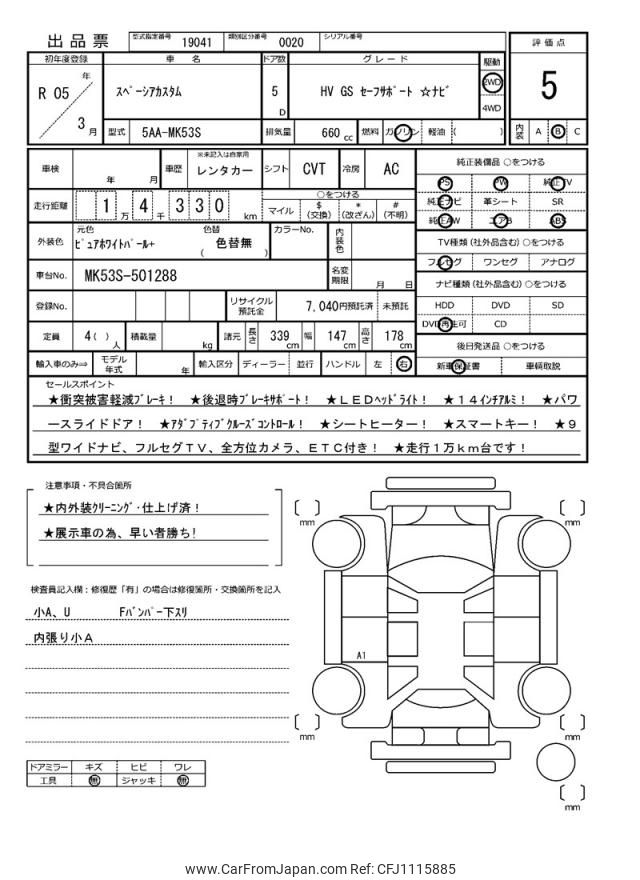 出品票
型式指定番号 19041 類別区分番号 0020 シリアル番号
初年度登録 車名 ドア数 グレード 駆動
R 05 年 3 月
スペーシアカスタム 5 D HV GS セーフサポート ☆ナビ 2WD 4WD
型式 5AA-MK53S 排気量 660 cc 燃料 ガソリン 軽油 ( )
評価点
5
内装 A B C
車検 年 月 車歴 ※未記入は自家用 レンタカー シフト CVT 冷房 AC
走行距離 1 万 4 千 3 3 0 km
○をつける
マイル $ (交換) * (改ざん) # (不明)
外装色 元色 ピュアホワイトパール+ 色替 ( 色替無 ) カラーNo. 内装色
車台No. MK53S-501288 名変期限 月 日
登録No. リサイクル預託金 7,040円預託済 未預託
定員 4( ) 人 積載量 kg 諸元 長さ 339 cm 幅 147 cm 高さ 178 cm
輸入車のみ⇒ モデル年式 年 輸入区分 ディーラー 並行 ハンドル 左 右
純正装備品 ○をつける
PS PW 純正TV
純正ナビ 革シート SR
純正AW エアB ABS
TV種類(社外品含む)○をつける
フルセグ ワンセグ アナログ
ナビ種類(社外品含む)○をつける
HDD DVD SD
DVD再生可 CD
後日発送品 ○をつける
新車保証書 車輌取説
セールスポイント
★衝突被害軽減ブレーキ! ★後退時ブレーキサポート! ★LEDヘッドライト! ★14インチアルミ! ★パワ
ースライドドア! ★アダプティブクルーズコントロール! ★シートヒーター! ★スマートキー! ★9
型ワイドナビ、フルセグTV、全方位カメラ、ETC付き! ★走行1万km台です!
注意事項・不具合箇所
★内外装クリーニング・仕上げ済!
★展示車の為、早い者勝ち!
検査員記入欄:修復歴「有」の場合は修復箇所・交換箇所を記入
小A、U Fバンパー下スリ
内張り小A
ドアミラー キズ ヒビ ワレ
工具 無 ジャッキ 無
mm
mm
A1
mm
mm
mm
www.CarFromJapan.com Ref: CFJ1115885